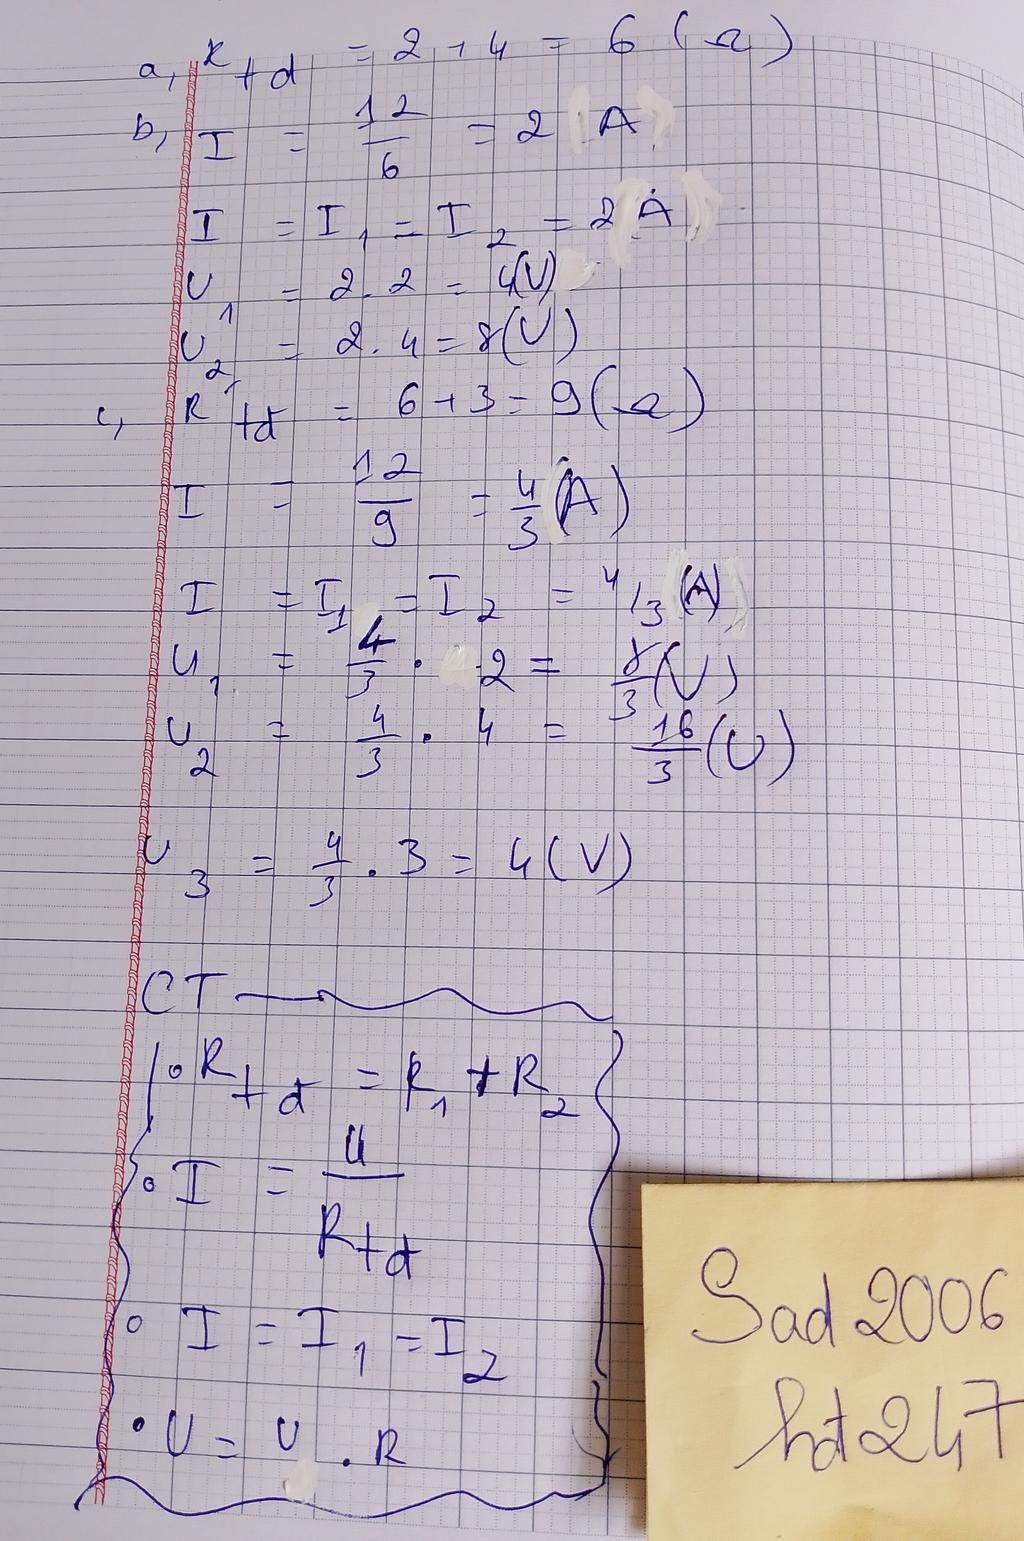 a, R_tđ = 2 + 4 = 6 (Ω)
b, I = 12/6 = 2 (A)
I = I_1 = I_2 = 2 (A)
U_1 = 2.2 = 4(V)
U_2 = 2.4 = 8(V)
c, R'_tđ = 6 + 3 = 9(Ω)
I = 12/9 = 4/3 (A)
I = I_1 = I_2 = 4/3 (A)
U_1 = 4/3 . 2 = 8/3 (V)
U_2 = 4/3 . 4 = 16/3 (V)
U_3 = 4/3 . 3 = 4(V)
CT
• R_tđ = R_1 + R_2
• I = U/R_tđ
• I = I_1 = I_2
• U = U . R
Sad2006
hd247